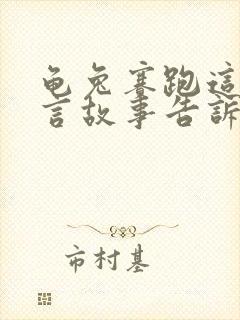 龟兔赛跑這
言故事告訴
市村基